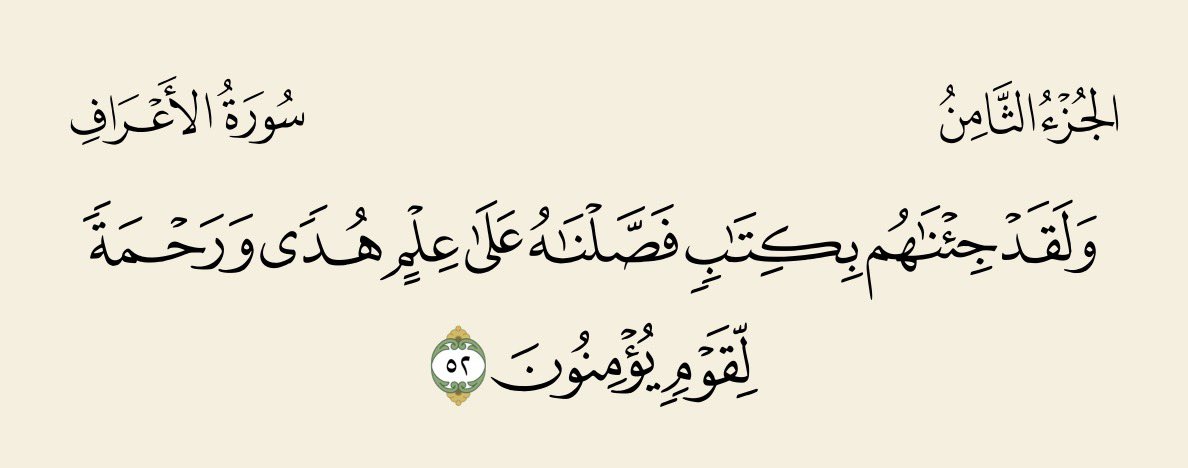 الجُزْءُ الثَّامِنُ
سُورَةُ الأَعْرَافِ
وَلَقَدْ جِئْنَٰهُم بِكِتَٰبٍ فَصَّلْنَٰهُ عَلَىٰ عِلْمٍ هُدًى وَرَحْمَةً
لِّقَوْمٍ يُؤْمِنُونَ ٥٢